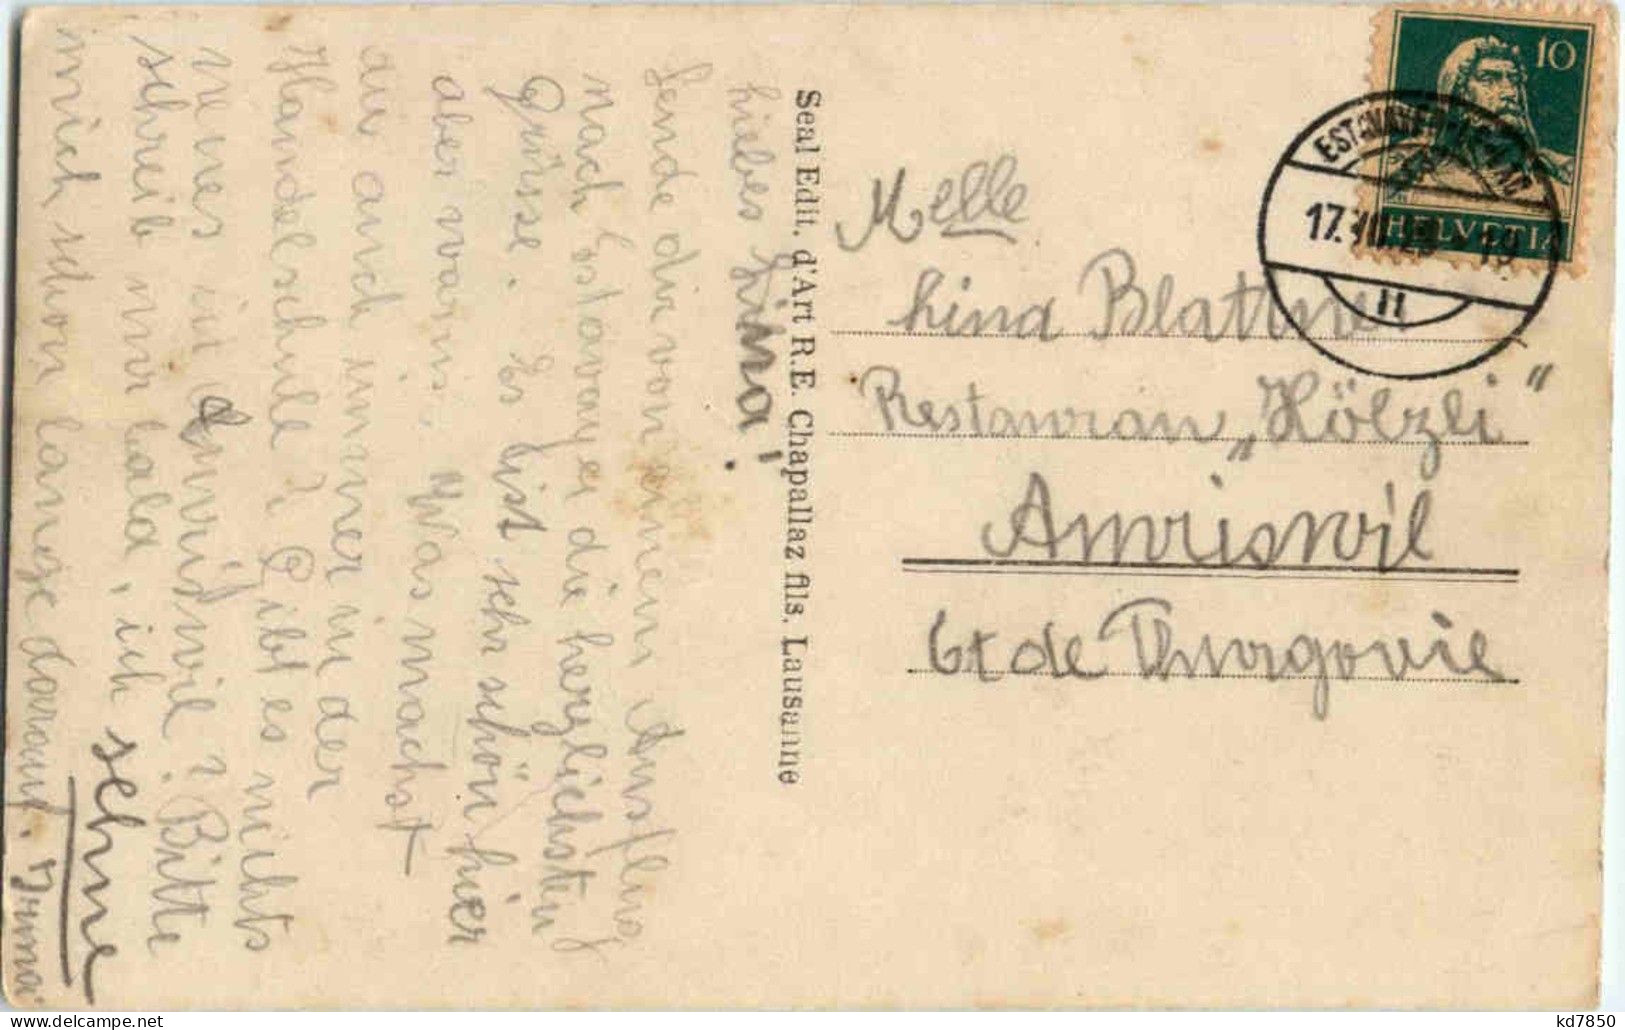 Liebes Lina!
Sende dir von einem Ausflug
nach Estavayer die herzlichsten
Grüsse. Es list sehr schön hier
aber warm. Was machst
du auch immer in der
Handelschule? Gibt es nichts
neues in Amriswil? Bitte
schreib mir bald, ich sehne
mich schon lange darauf. Irma
Seal Edit. d'Art R. E. Chapallaz fils. Lausanne
10
HELVETIA
17. VII. 19
Melle
Lina Blattne
Restauran „Hölzli"
Amriswil
Ct de Thurgovie
kd7850